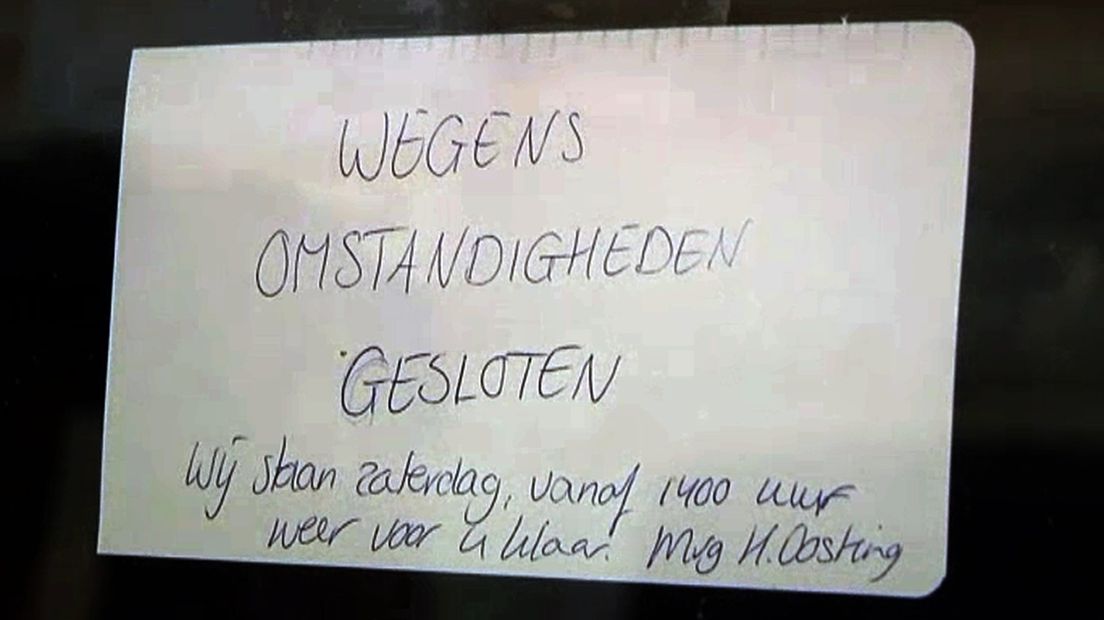 WEGENS
OMSTANDIGHEDEN
GESLOTEN
Wij staan zaterdag, vanaf 1400 uur
weer voor u klaar. Mvg H. Oosting